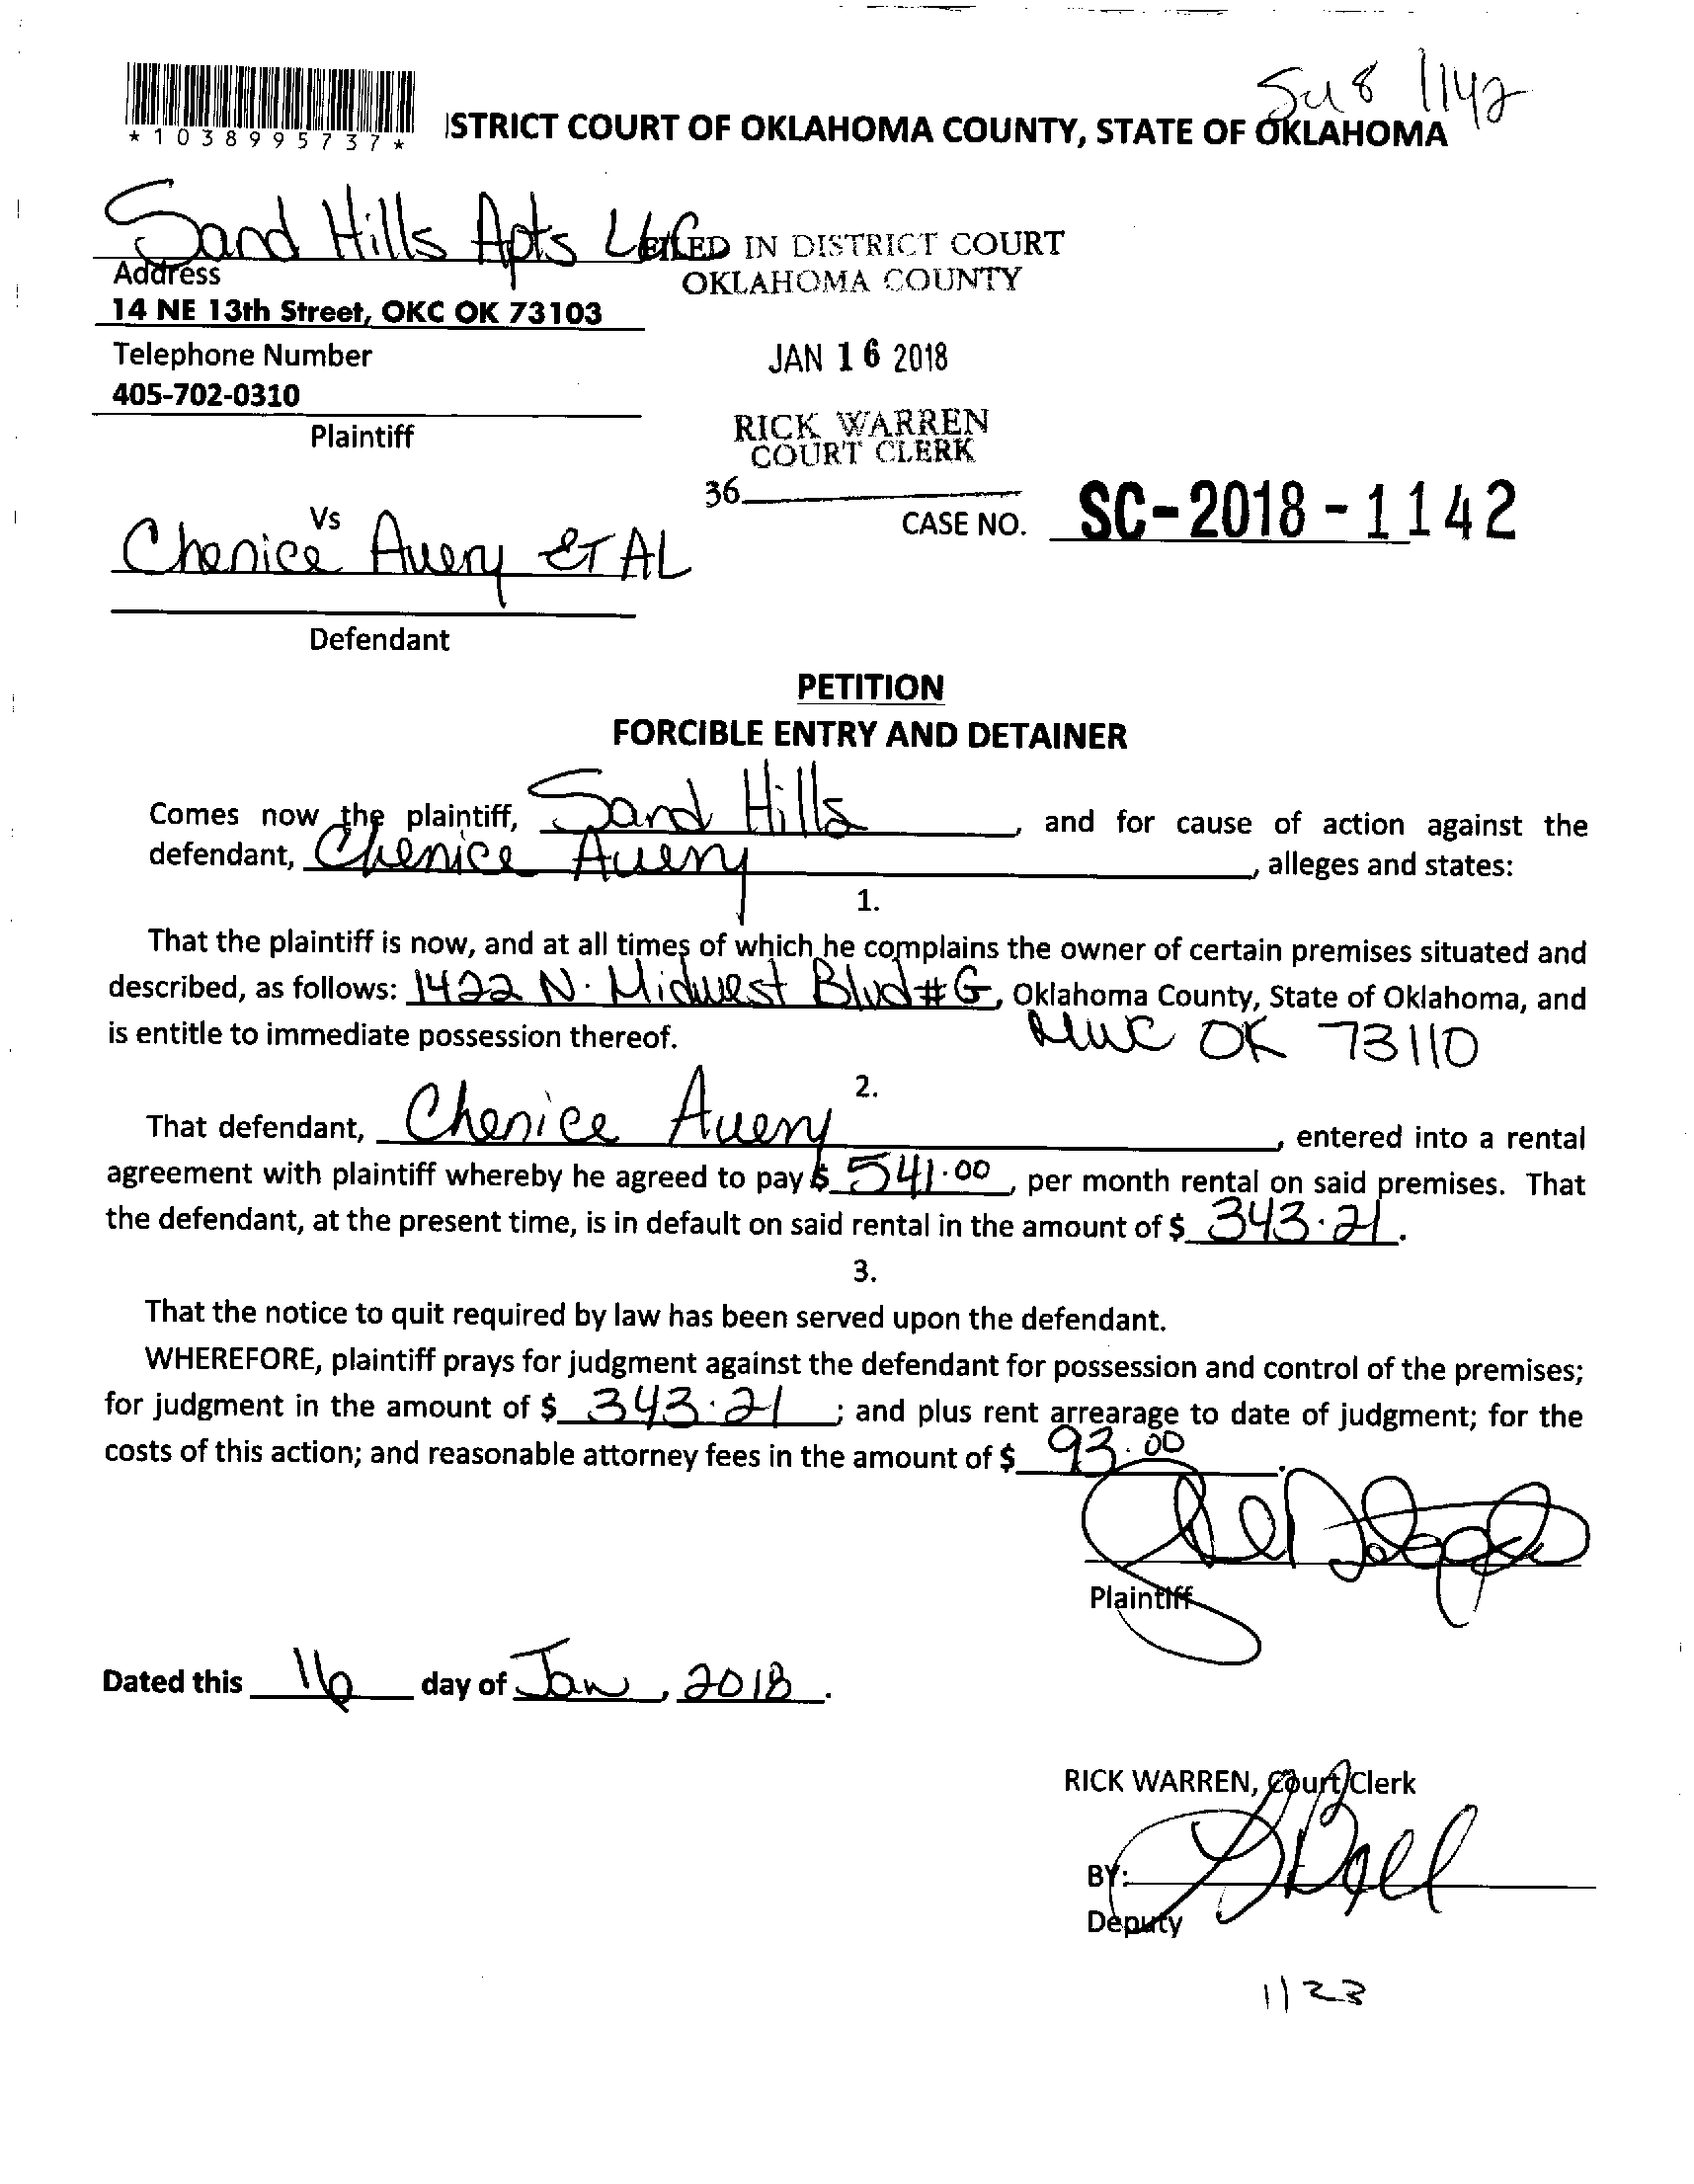 Su 8 1142
*1038995737*
ISTRICT COURT OF OKLAHOMA COUNTY, STATE OF OKLAHOMA
Sand Hills Apts LLC
FILED IN DISTRICT COURT
OKLAHOMA COUNTY
Address
14 NE 13th Street, OKC OK 73103
Telephone Number
JAN 16 2018
405-702-0310
Plaintiff
RICK WARREN
COURT CLERK
36
Vs
CASE NO. SC-2018-1142
Chenice Avery ET AL
Defendant
PETITION
FORCIBLE ENTRY AND DETAINER
Comes now the plaintiff, Sand Hills, and for cause of action against the
defendant, Chenice Avery, alleges and states:
1.
That the plaintiff is now, and at all times of which he complains the owner of certain premises situated and
described, as follows: 1422 N. Midwest Blvd #G, Oklahoma County, State of Oklahoma, and
is entitle to immediate possession thereof. MWC OK 73110
2.
That defendant, Chenice Avery, entered into a rental
agreement with plaintiff whereby he agreed to pay $ 541.00, per month rental on said premises. That
the defendant, at the present time, is in default on said rental in the amount of $ 343.21.
3.
That the notice to quit required by law has been served upon the defendant.
WHEREFORE, plaintiff prays for judgment against the defendant for possession and control of the premises;
for judgment in the amount of $ 343.21; and plus rent arrearage to date of judgment; for the
costs of this action; and reasonable attorney fees in the amount of $ 93.00.
Plaintiff
Dated this 16 day of Jan, 2018.
RICK WARREN, Court Clerk
BY:
Deputy
1123